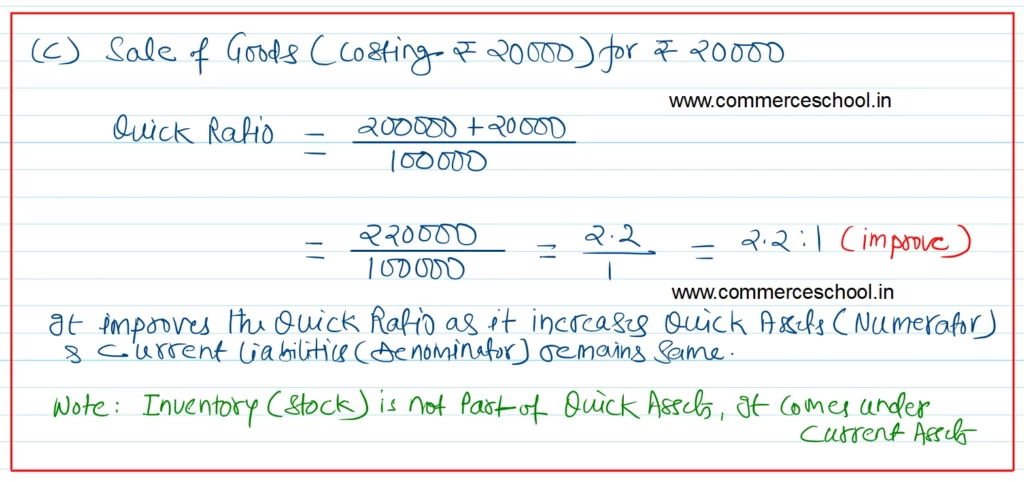 (c) Sale of Goods (Costing ₹ 20000) for ₹ 20000
www.commerceschool.in
Quick Ratio = 200000 + 20000
100000
= 220000 = 2.2 = 2.2 : 1 (improve)
100000 1
www.commerceschool.in
It improves the Quick Ratio as it increases Quick Assets (Numerator)
& Current Liabilities (Denominator) remains same.
Note: Inventory (Stock) is not Part of Quick Assets, It comes under
Current Assets